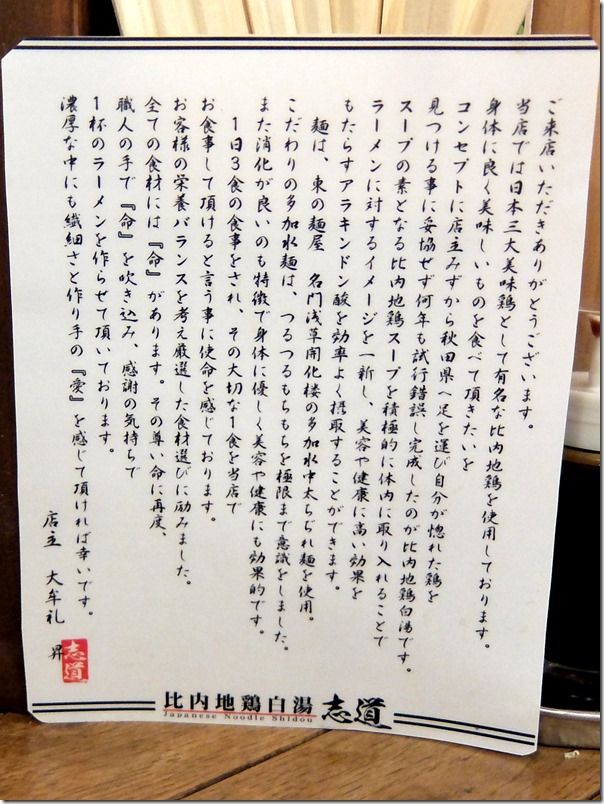 ご来店いただきありがとうございます。
当店では日本三大美味鶏として有名な比内地鶏を使用しております。
身体に良く美味しいものを食べて頂きたいを
コンセプトに店主みずから秋田県へ足を運び自分が惚れた鶏を
見つける事に妥協せず何年も試行錯誤し完成したのが比内地鶏白湯です。
スープの素となる比内地鶏スープを積極的に体内に取り入れることで
ラーメンに対するイメージを一新し、美容や健康に高い効果を
もたらすアラキンドン酸を効率よく摂取することができます。
麺は、東の麺屋 名門浅草開化楼の多加水中太ちぢれ麺を使用。
こだわりの多加水麺は、つるつるもちもちを極限まで意識をしました。
また消化が良いのも特徴で身体に優しく美容や健康にも効果的です。
1日3食の食事をされ、その大切な1食を当店で
お食事して頂けると言う事に使命を感じております。
お客様の栄養バランスを考え厳選した食材選びに励みました。
全ての食材には『命』があります。その尊い命に再度、
職人の手で『命』を吹き込み、感謝の気持ちで
1杯のラーメンを作らせて頂いております。
濃厚な中にも繊細さと作り手の『愛』を感じて頂ければ幸いです。
店主 大牟礼 昇
志道
比内地鶏白湯 志道
Japanese Noodle Shidou